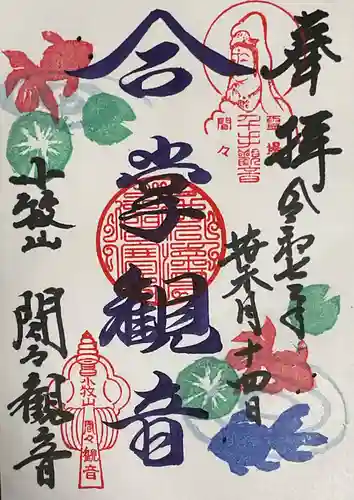 奉拝
令和七年
葉月十四日
霊場
千手観音
間々
合掌観音
小牧山
間々観音
小牧
間々観音